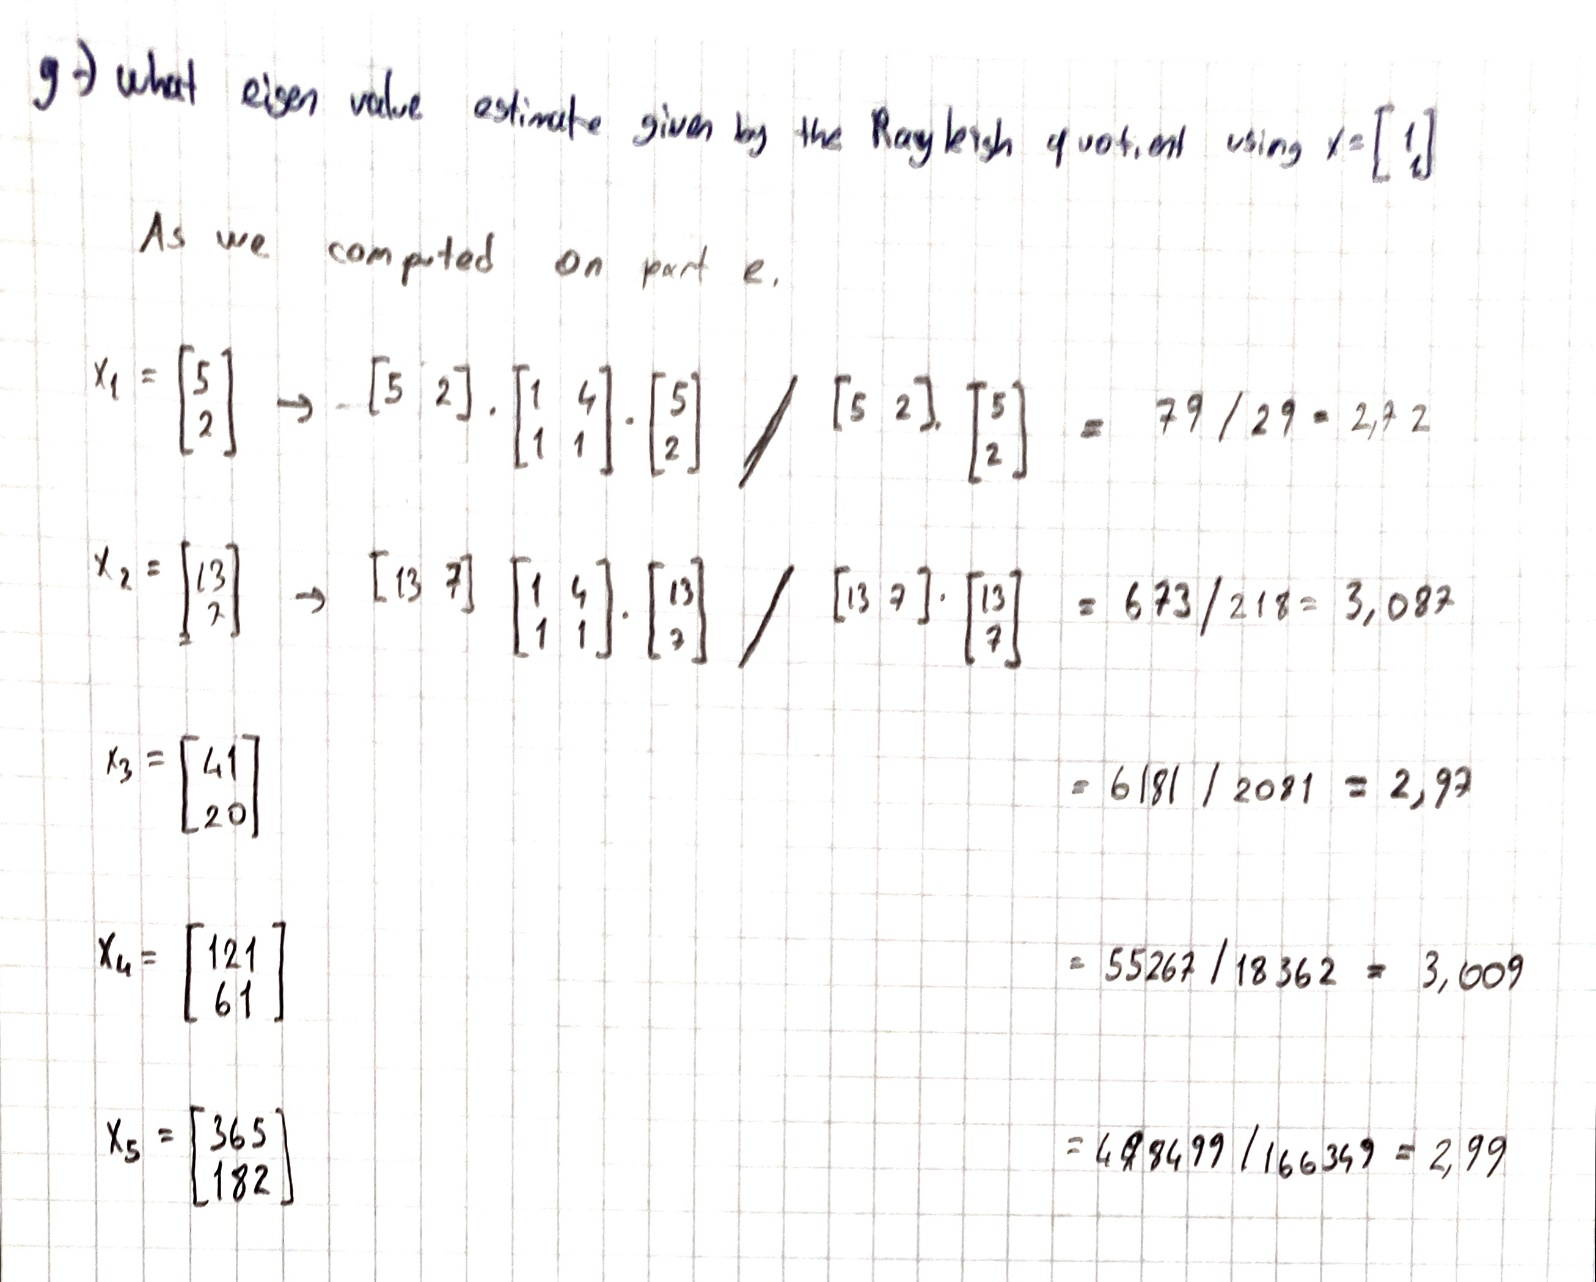 g-) what eigen value estimate given by the Rayleigh quotient using x = [1 1]
As we computed on part e.
x1 = [5 2] → [5 2] . [1 4 1 1] . [5 2] / [5 2] . [5 2] = 79 / 29 = 2,72
x2 = [13 7] → [13 7] [1 4 1 1] . [13 7] / [13 7] . [13 7] = 673 / 218 = 3,087
x3 = [41 20] = 6181 / 2081 = 2,97
x4 = [121 61] = 55267 / 18362 = 3,009
x5 = [365 182] = 498499 / 166349 = 2,99